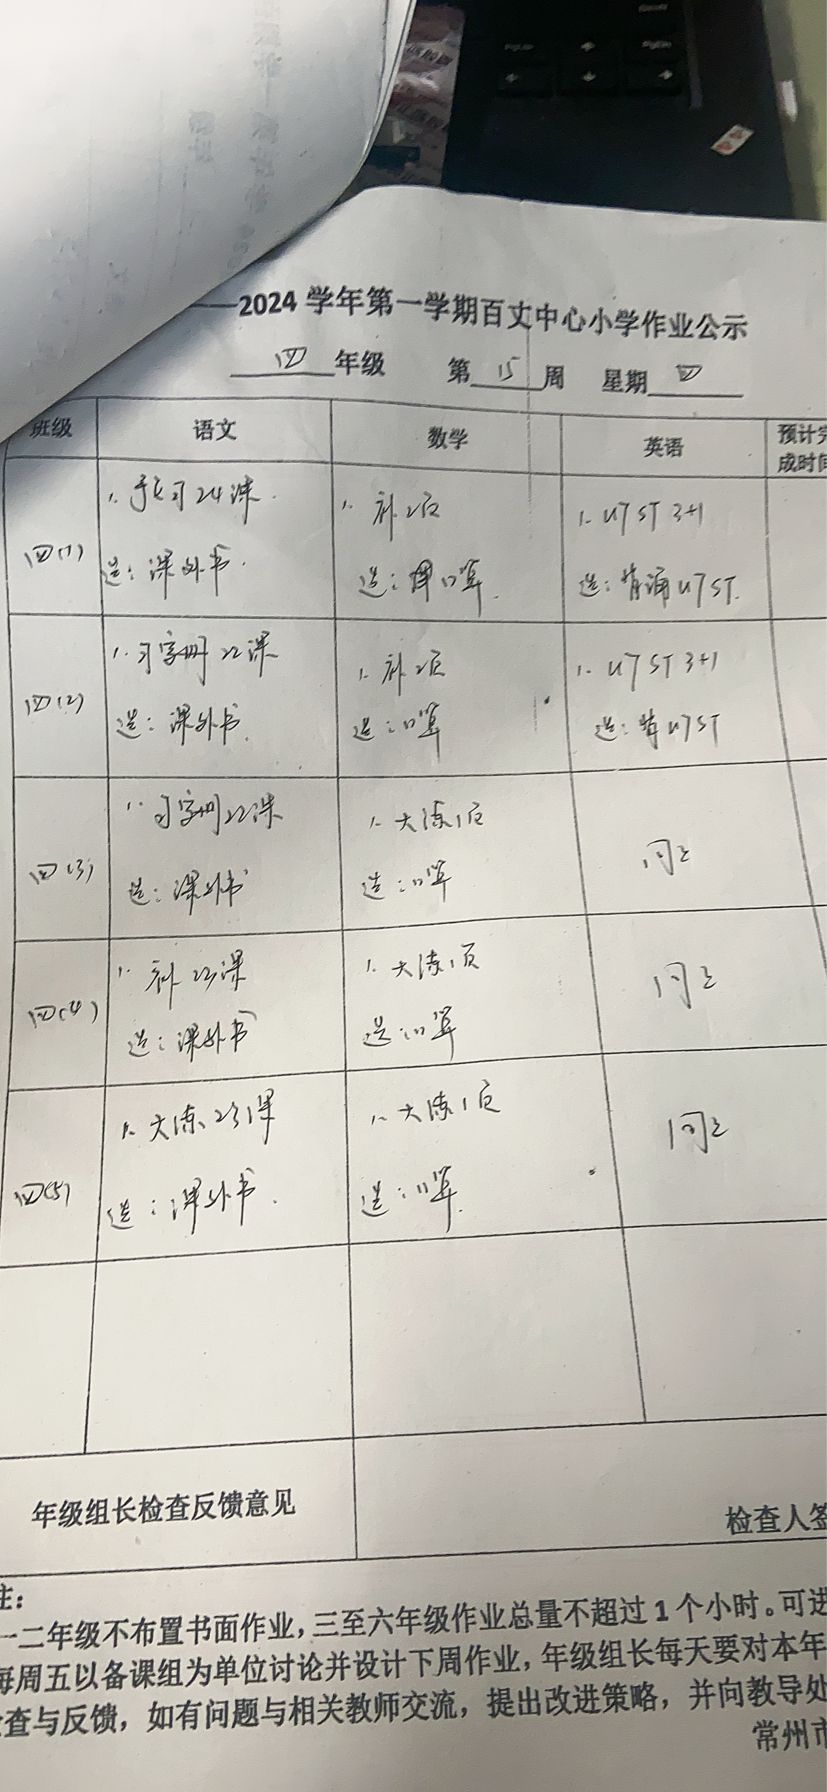 2024 学年第一学期百丈中心小学作业公示
四 年级 第 15 周 星期 四
班级 语文 数学 英语 预计完
成时间
四(1)
1. 预习24课.
选：课外书.
1. 补2页
选：口算.
1. U7 ST 3+1
选：背诵U7 ST.
四(2)
1. 习字册22课
选：课外书.
1. 补2页
选：口算
1. U7 ST 3+1
选：背U7ST
四(3)
1. 习字册22课
选：课外书
1. 大练1页
选：口算
同上
四(4)
1. 补23课
选：课外书
1. 大练1页
选：口算
同上
四(5)
1. 大练23课
选：课外书.
1. 大练1页
选：口算.
同上
年级组长检查反馈意见
检查人签
注：
一二年级不布置书面作业，三至六年级作业总量不超过 1 个小时。可进
每周五以备课组为单位讨论并设计下周作业，年级组长每天要对本年
查与反馈，如有问题与相关教师交流，提出改进策略，并向教导处
常州市